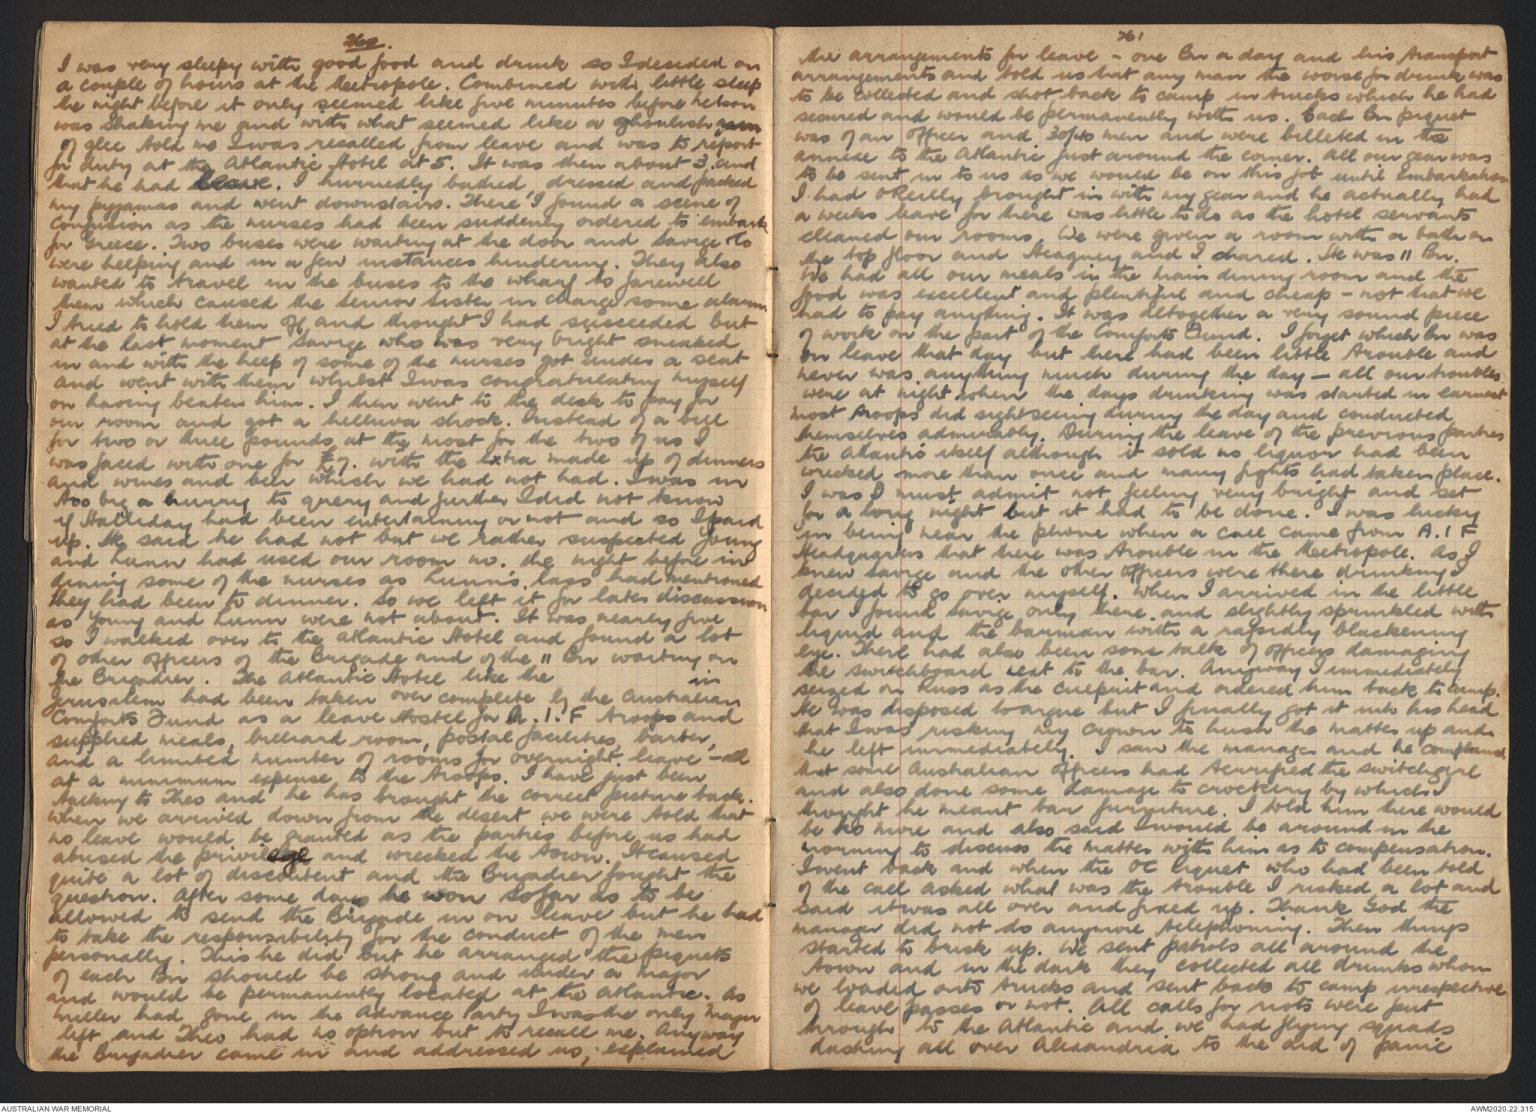 260.
I was very sleepy with good food and drink so I decided on
a couple of hours at the Metropole. Combined with little sleep
the night before it only seemed like five minutes before Nelson
was shaking me and with what seemed like a ghoulish grin
of glee told me I was recalled from leave and was to report
for duty at the Atlantic Hotel at 5. It was then about 3. and
that he had leave. I hurriedly bathed, dressed and packed
my pyjamas and went downstairs. There I found a scene of
confusion as the nurses had been suddenly ordered to embark
for Greece. Two buses were waiting at the door and Savige & Co
were helping and in a few instances hindering. They also
wanted to travel in the buses to the wharf to farewell
them which caused the Senior Sister in charge some alarm
I tried to hold them off and thought I had succeeded but
at the last moment Savige who was very bright sneaked
in and with the help of some of the nurses got under a seat
and went with them whilst I was congratulating myself
on having beaten him. I then went to the desk to pay for
our room and got a helluva shock. Instead of a bill
for two or three pounds at the most for the two of us I
was faced with one for £7. with the extra made up of dinners
and wines and beer which we had not had. I was in
too big a hurry to query and further I did not know
if Halliday had been entertaining or not and so I paid
up. He said he had not but we rather suspected Young
and Lunn had used our room no. the night before in
dining some of the nurses as Lunn's lass had mentioned
they had been to dinner. So we left it for later discussion
as Young and Lunn were not about. It was nearly five
so I walked over to the Atlantic Hotel and found a lot
of other officers of the Brigade and of the 11 Bn waiting on
the Brigadier. The Atlantic Hotel like the in
Jerusalem had been taken over complete by the Australian
Comforts Fund as a leave Hostel for A.I.F troops and
supplied meals, billiard room, postal facilities, barber,
and a limited number of rooms for overnight leave - all
at a minimum expense to the troops. I have just been
talking to Theo and he has brought the correct picture back.
When we arrived down from the desert we were told that
no leave would be granted as the parties before us had
abused the privilege and wrecked the town. It caused
quite a lot of discontent and the Brigadier fought the
question. After some days he won so far as to be
allowed to send the Brigade in on leave but he had
to take the responsibility for the conduct of the men
personally. This he did but he arranged the piquets
of each Bn should be strong and under a major
and would be permanently located at the Atlantic. As
Miller had gone in the Advance Party I was the only Major
left and Theo had no option but to recall me. Anyway
the Brigadier came in and addressed us, explained
261
the arrangements for leave - one Bn a day and his transport
arrangements and told us that any man the worse for drink was
to be collected and shot back to camp in trucks which he had
secured and would be permanently with us. Each Bn piquet
was of an officer and 30/40 men and were billeted in the
annexe to the Atlantic just around the corner. All our gear was
to be sent in to us as we would be on this job until Embarkation
I had O'Reilly brought in with my gear and he actually had
a weeks leave for there was little to do as the hotel servants
cleaned our rooms. We were given a room with a bath on
the top floor and Heagney and I shared. He was 11 Bn.
We had all our meals in the main dining room and the
food was excellent and plentiful and cheap - not that we
had to pay anything. It was altogether a very sound piece
of work on the part of the Comforts Fund. I forget which Bn was
on leave that day but there had been little trouble and
never was anything much during the day - all our troubles
were at night when the days drinking was started in earnest
most troops did sightseeing during the day and conducted
themselves admirably. During the leave of the previous parties
the Atlantic itself although it sold no liquor had been
wrecked more than once and many fights had taken place.
I was I must admit not feeling very bright and set
for a long night but it had to be done. I was lucky
in being near the phone when a call came from A.I F
Headquarters that there was trouble in the Metropole. As I
knew Savige and the other officers were there drinking I
decided to go over myself. When I arrived in the little
bar I found Savige only there and slightly sprinkled with
liquid and the barman with a rapidly blackening
eye. There had also been some talk of officers damaging
the switchboard next to the bar. Anyway I immediately
seized on Russ as the culprit and ordered him back to camp.
He was disposed to argue but I finally got it into his head
that I was risking my crown to hush the matter up and
he left immediately. I saw the manager and he complained
that some Australian officers had terrified the switchgirl
and also done some damage to crockery by which I
thought he meant bar furniture. I told him there would
be no more and also said I would be around in the
morning to discuss the matter with him as to compensation.
I went back and when the OC Piquet who had been told
of the call asked what was the trouble I risked a lot and
said it was all over and fixed up. Thank God the
manager did not do anymore telephoning. Then things
started to brisk up. We sent patrols all around the
town and in the dark they collected all drunks whom
we loaded onto trucks and sent back to camp irrespective
of leave passes or not. All calls for riots were put
through to the Atlantic and we had flying squads
dashing all over Alexandria to the aid of panic
AUSTRALIAN WAR MEMORIAL
AWM2020.22.315